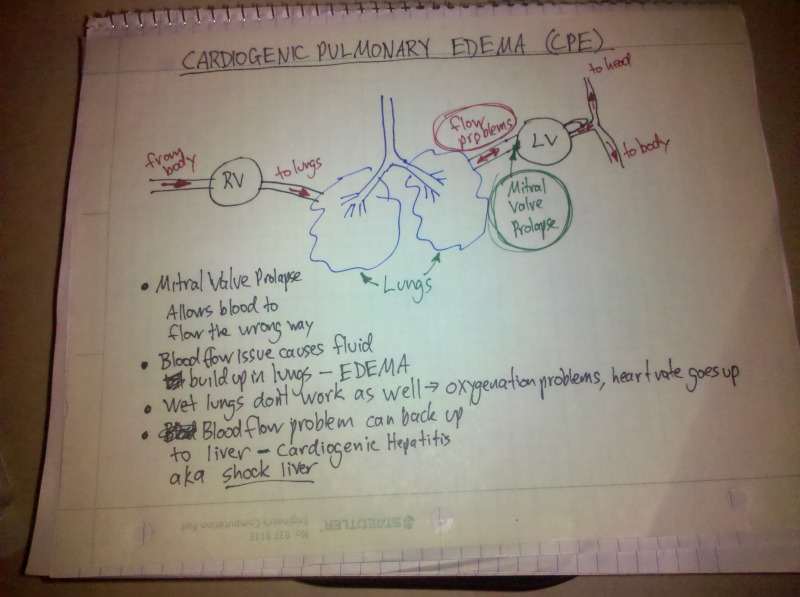 CARDIOGENIC PULMONARY EDEMA (CPE)
to head
flow
problems
LV
from
body
RV
to lungs
to body
Mitral
Valve
Prolapse
Lungs
• Mitral Valve Prolapse
Allows blood to
flow the wrong way
• Blood flow issue causes fluid
build up in lungs – EDEMA
• Wet lungs don't work as well → oxygenation problems, heart rate goes up
• Blood flow problem can back up
to liver – Cardiogenic Hepatitis
aka shock liver
STAEDTLER
No. 937 811E
Engineer's Computation Pad